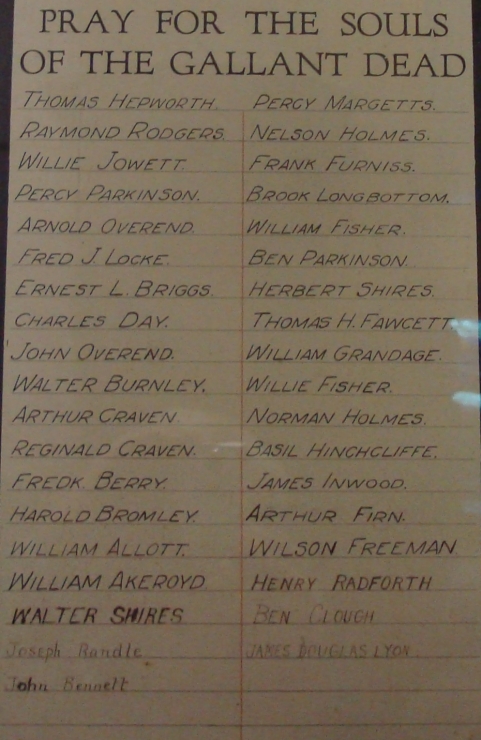 PRAY FOR THE SOULS
OF THE GALLANT DEAD
THOMAS HEPWORTH.
RAYMOND RODGERS.
WILLIE JOWETT.
PERCY PARKINSON.
ARNOLD OVEREND.
FRED J. LOCKE.
ERNEST L. BRIGGS.
CHARLES DAY.
JOHN OVEREND.
WALTER BURNLEY.
ARTHUR CRAVEN
REGINALD CRAVEN.
FREDK. BERRY.
HAROLD BROMLEY.
WILLIAM ALLOTT.
WILLIAM AKEROYD.
WALTER SHIRES
Joseph Randle
John Bennett
PERCY MARGETTS.
NELSON HOLMES.
FRANK FURNISS.
BROOK LONGBOTTOM.
WILLIAM FISHER.
BEN PARKINSON.
HERBERT SHIRES.
THOMAS H. FAWCETT.
WILLIAM GRANDAGE.
WILLIE FISHER.
NORMAN HOLMES.
BASIL HINCHCLIFFE.
JAMES INWOOD.
ARTHUR FIRN.
WILSON FREEMAN.
HENRY RADFORTH
BEN CLOUGH
JAMES DOUGLAS LYON